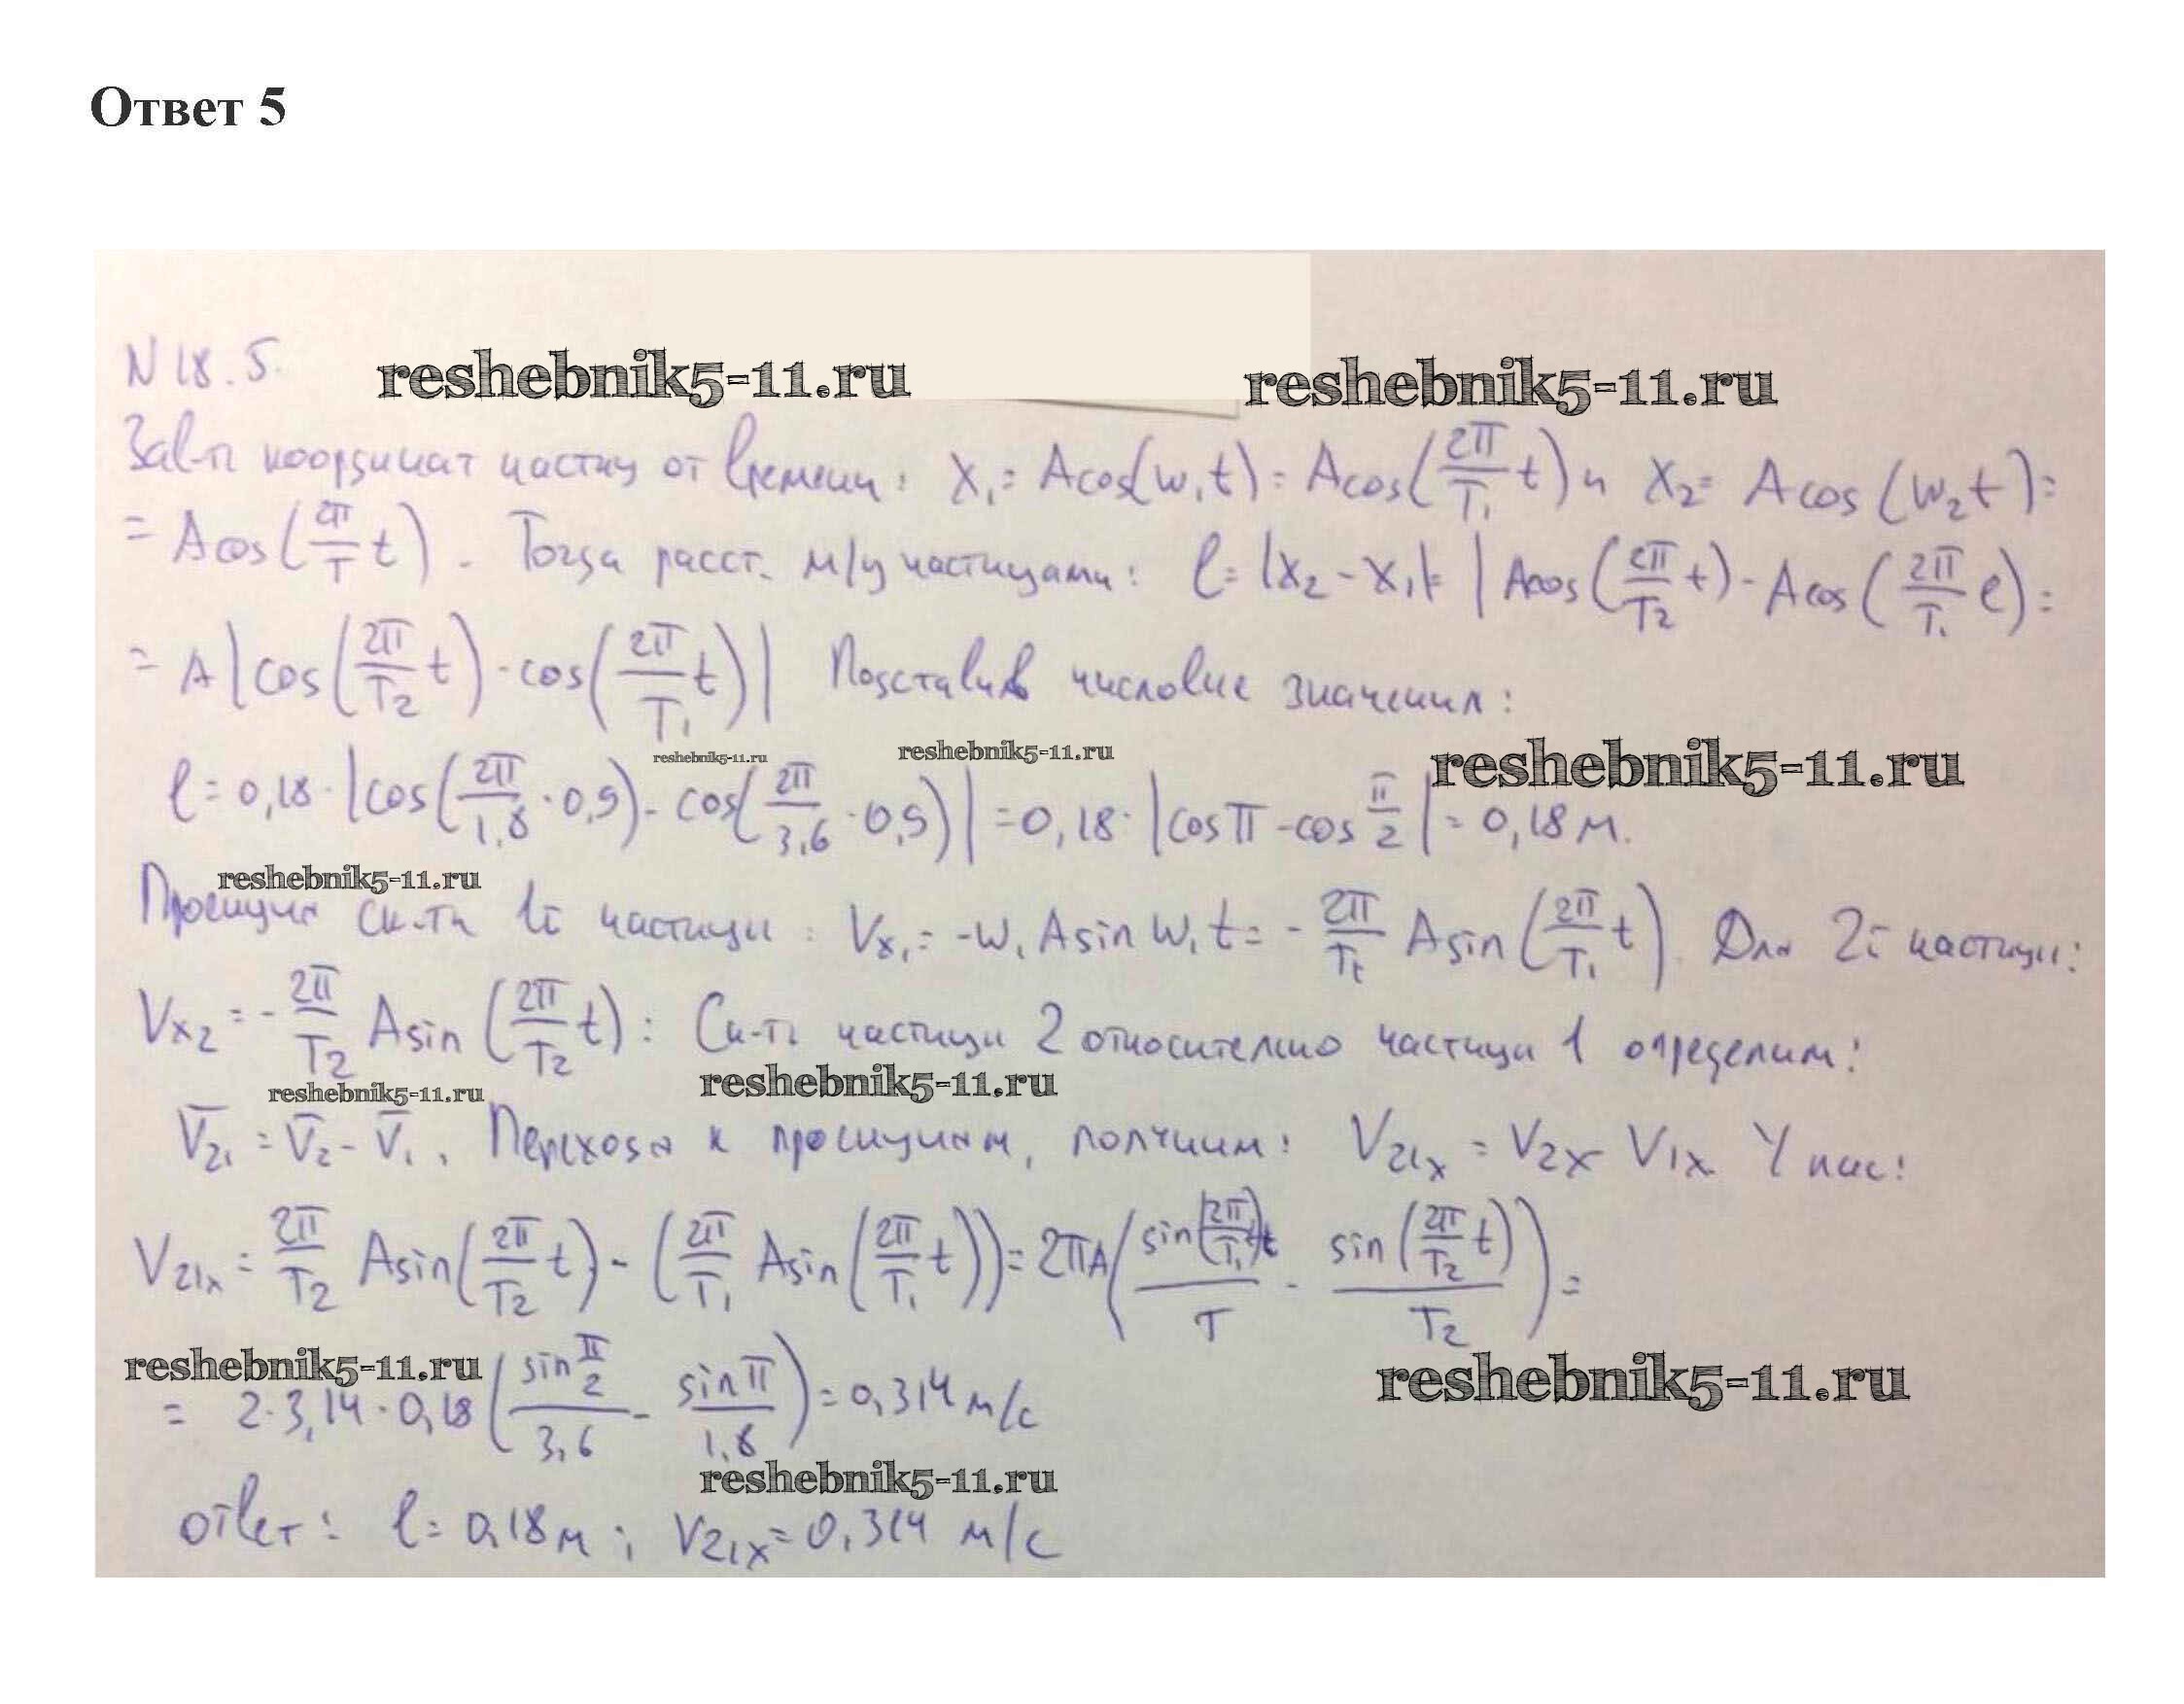 Ответ 5
N 18.5.
reshebnik5-11.ru reshebnik5-11.ru
Зав-ть координат частиц от времени: X₁ = Acos(w₁t) = Acos(2π/T₁ t) и X₂ = Acos(w₂t) =
= Acos(2π/T t). Тогда расст. м/у частицами: l = |X₂ - X₁| = |Acos(2π/T₂ t) - Acos(2π/T₁ t) =
= A|cos(2π/T₂ t) - cos(2π/T₁ t)| Подставив числовые значения:
reshebnik5-11.ru reshebnik5-11.ru reshebnik5-11.ru
l = 0,18 · |cos(2π/1,8 · 0,9) - cos(2π/3,6 · 0,9)| = 0,18 · |cos π - cos π/2| = 0,18 м.
reshebnik5-11.ru
Проекция ск-ти 1й частицы: Vx₁ = -w₁ A sin w₁t = - 2π/T₁ A sin(2π/T₁ t). Для 2й частицы:
Vx₂ = - 2π/T₂ A sin(2π/T₂ t): Ск-ть частицы 2 относительно частицы 1 определим:
reshebnik5-11.ru reshebnik5-11.ru
V̅₂₁ = V̅₂ - V̅₁. Переходя к проекциям, получим: V₂₁ₓ = V₂ₓ - V₁ₓ У нас:
V₂₁ₓ = 2π/T₂ A sin(2π/T₂ t) - (2π/T₁ A sin(2π/T₁ t)) = 2πA(sin(2π/T₁)t/T - sin(2π/T₂ t)/T₂) =
reshebnik5-11.ru reshebnik5-11.ru
= 2·3,14·0,18(sin π/2 / 3,6 - sin π / 1,8) = 0,314 м/с
reshebnik5-11.ru
ответ: l = 0,18 м; V₂₁ₓ = 0,314 м/с